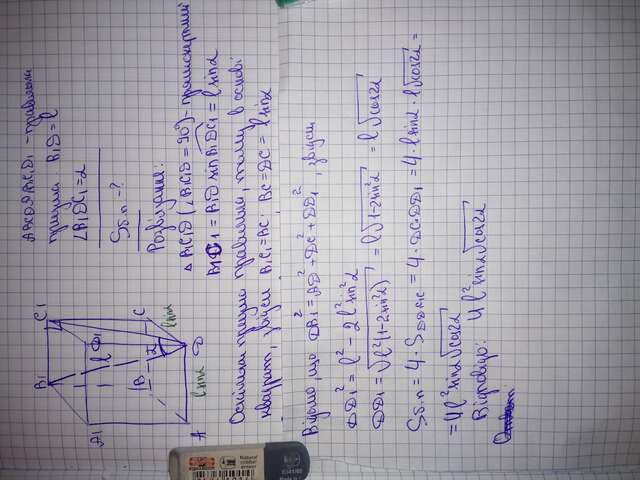 ABCDA1B1C1D1 - правильна
призма. B1D = l
∠B1DC1 = α
Sб.п - ?
Розв'язання:
△ B1C1D (∠B1C1D = 90°) - прямокутний
B1C1 = B1D sin B1DC1 = l sin α
Оскільки призма правильна, тому в основі
квадрат, звідси B1C1 = BC: BC = DC = l sin α
Відомо, що DB1² = AD² + DC² + DD1², звідси
DD1² = l² - 2l² sin² α
DD1 = √l²(1-2sin²α) = l√1-2sin²α = l√cos2α
Sб.п = 4 · SDD1C1C = 4 · DC·DD1 = 4 · l sin α · l√cos2α =
= 4l² sin α √cos2α
Відповідь: 4l² sin α √cos2α
B1
C1
A1
D1
l
B
α
C
l sin α
A
l sin α
D